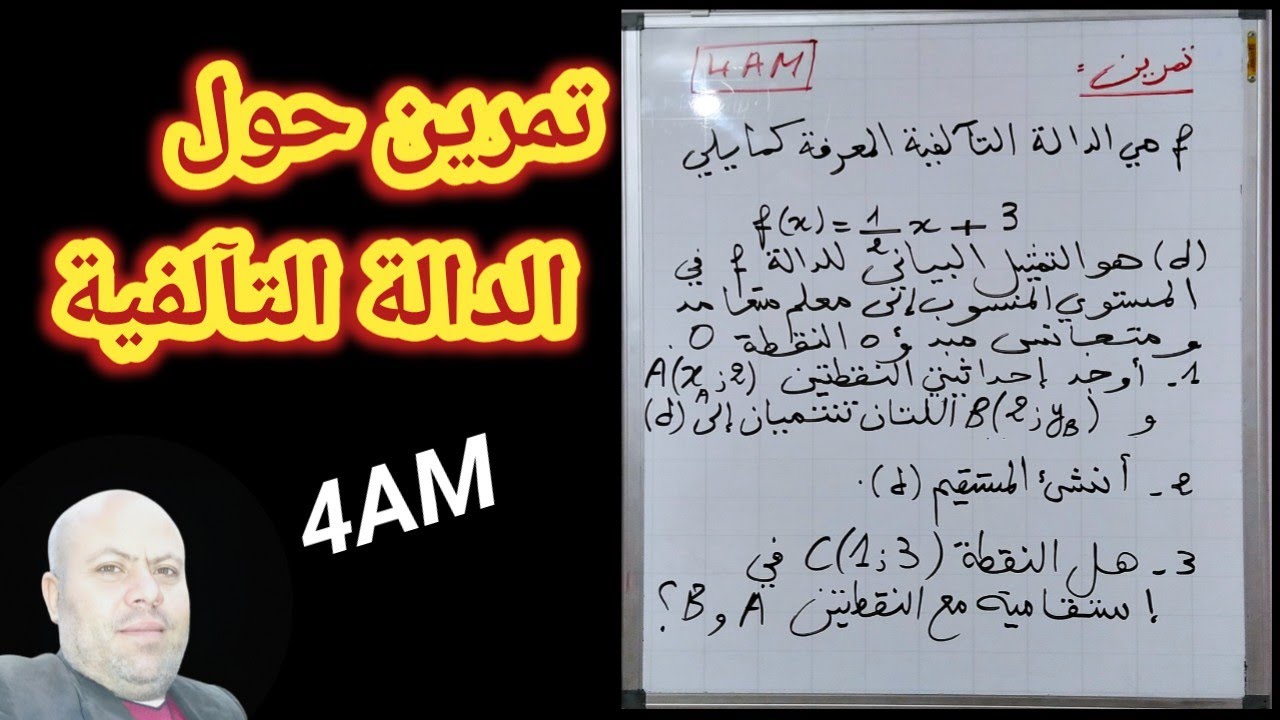 تمرين حول
الدالة التآلفية
4AM
تمرين:
4AM
f هي الدالة التآلفية المعرفة كمايلي
f(x) = 1/2 x + 3
(d) هو التمثيل البياني للدالة f في
المستوي المنسوب إلى معلم متعامد
و متجانس مبدؤه النقطة O.
1- أوجد إحداثيتي النقطتين A(x_A ; 2)
و B(2 ; y_B) اللتان تنتميان إلى (d)
2- أنشئ المستقيم (d).
3- هل النقطة C(1 ; 3) في
إستقامية مع النقطتين A و B؟